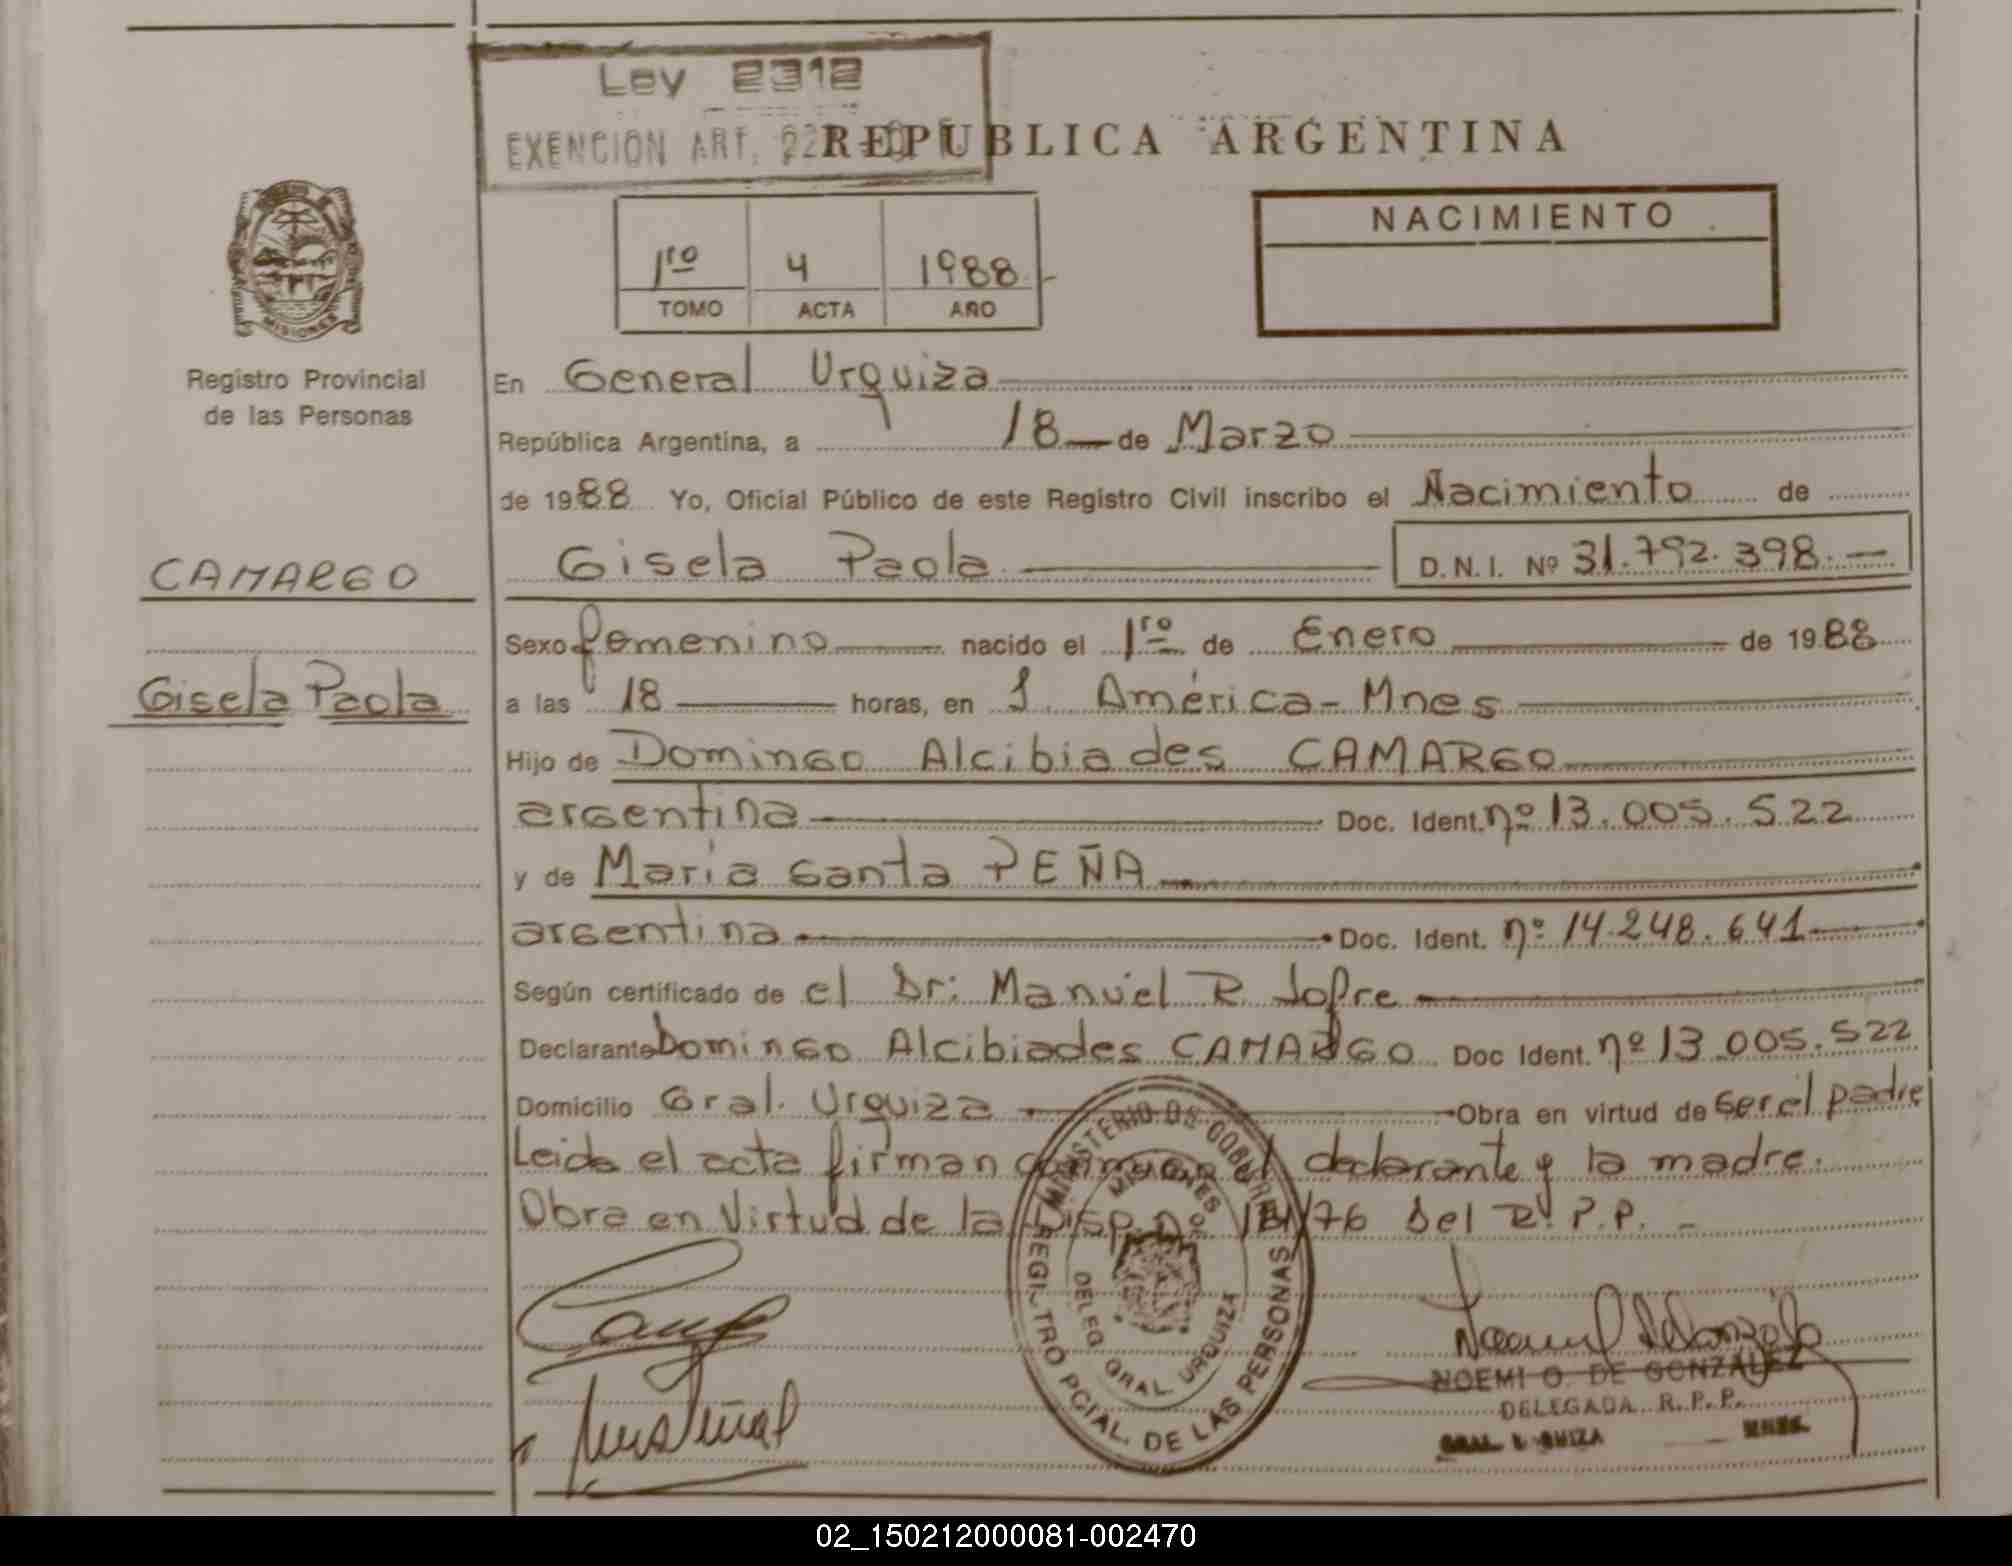 Ley 2312
EXENCION ART. 22
REPUBLICA ARGENTINA
NACIMIENTO
1ro 4 1988
TOMO ACTA AÑO
MISIONES
Registro Provincial
de las Personas
En General Urquiza
República Argentina, a 18 de Marzo
de 1988 Yo, Oficial Público de este Registro Civil inscribo el Nacimiento de
Gisela Paola D.N.I. Nº 31.792.398.
CAMARGO
Sexo femenino nacido el 1ro de Enero de 1988
Gisela Paola
a las 18 horas, en S. América-Mnes
Hijo de Domingo Alcibiades CAMARGO
argentina Doc. Ident. nº 13.005.522
y de Maria Santa PEÑA
argentina Doc. Ident. nº 14.248.641
Según certificado de el Dr: Manuel R. Jofre
Declarante Domingo Alcibiades CAMARGO Doc Ident. nº 13.005.522
Domicilio Gral. Urquiza Obra en virtud de ser el padre
Leida el acta firman declarante y la madre.
Obra en Virtud de la Disp. nº /76 Del R.P.P.
MINISTERIO DE GOBIERNO
MISIONES
DELEG GRAL URQUIZA
REGISTRO PCIAL. DE LAS PERSONAS
NOEMI O. DE GONZALEZ
DELEGADA R.P.P.
GRAL URQUIZA MNES.
02_150212000081-002470